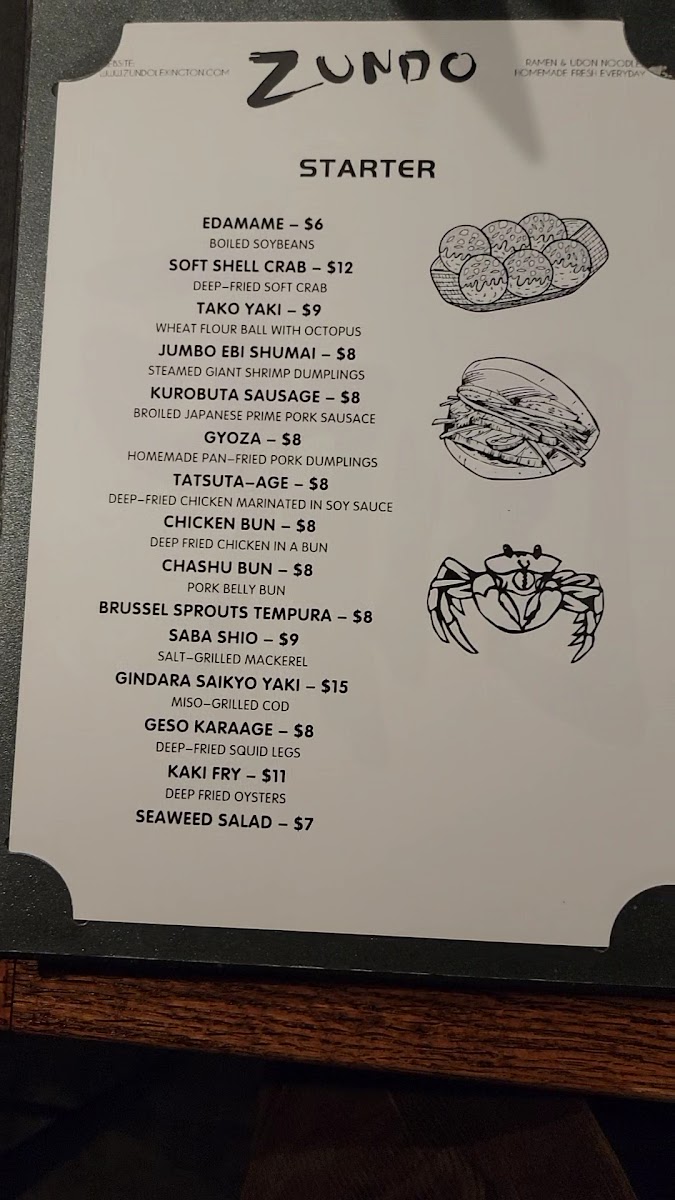 ZUNDO
RAMEN & UDON NOODLE
HOMEMADE FRESH EVERYDAY
STARTER
EDAMAME – $6
BOILED SOYBEANS
SOFT SHELL CRAB – $12
DEEP–FRIED SOFT CRAB
TAKO YAKI – $9
WHEAT FLOUR BALL WITH OCTOPUS
JUMBO EBI SHUMAI – $8
STEAMED GIANT SHRIMP DUMPLINGS
KUROBUTA SAUSAGE – $8
BROILED JAPANESE PRIME PORK SAUSAGE
GYOZA – $8
HOMEMADE PAN–FRIED PORK DUMPLINGS
TATSUTA–AGE – $8
DEEP–FRIED CHICKEN MARINATED IN SOY SAUCE
CHICKEN BUN – $8
DEEP FRIED CHICKEN IN A BUN
CHASHU BUN – $8
PORK BELLY BUN
BRUSSEL SPROUTS TEMPURA – $8
SABA SHIO – $9
SALT–GRILLED MACKEREL
GINDARA SAIKYO YAKI – $15
MISO–GRILLED COD
GESO KARAAGE – $8
DEEP–FRIED SQUID LEGS
KAKI FRY – $11
DEEP FRIED OYSTERS
SEAWEED SALAD – $7